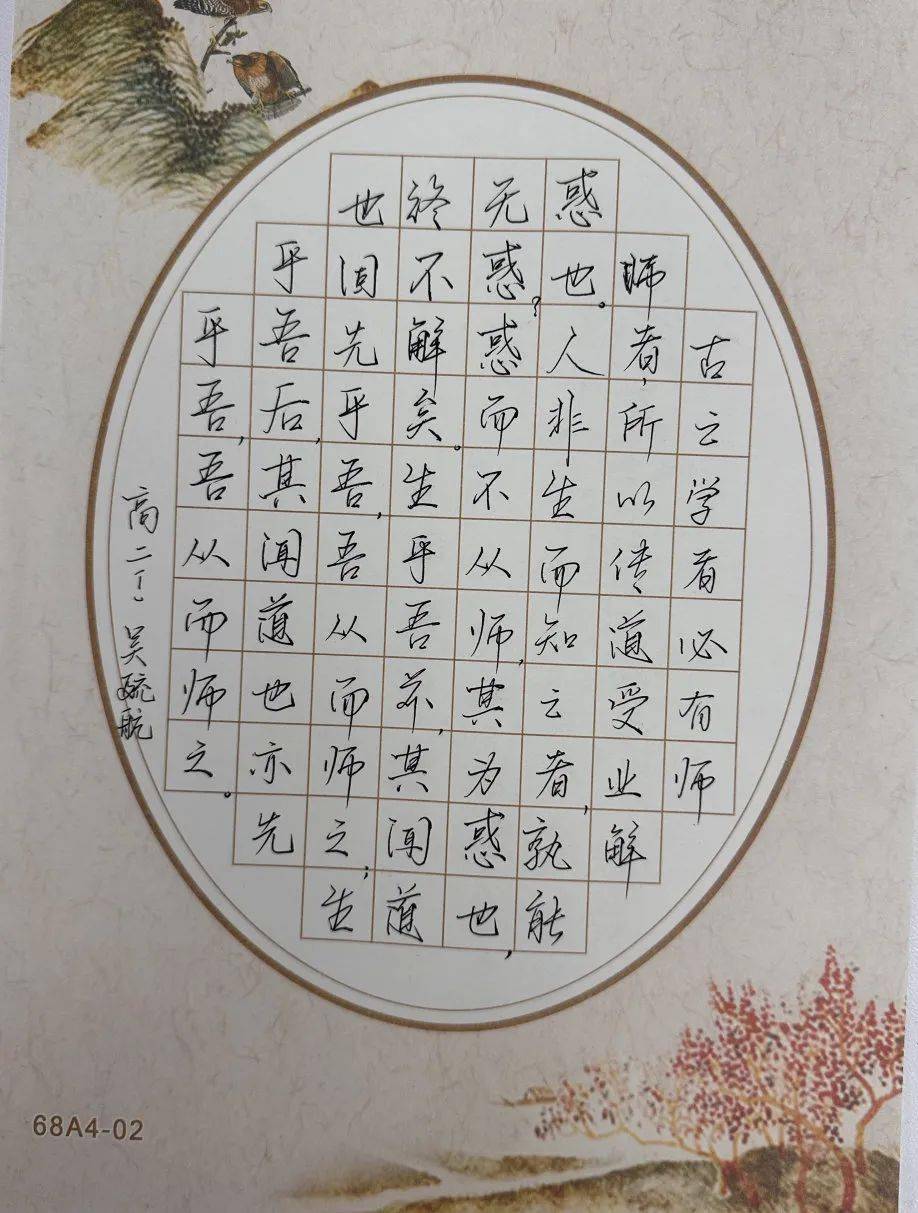 古之学者必有师
师者,所以传道受业解
惑也。人非生而知之者,孰能
无惑?惑而不从师,其为惑也,
终不解矣。生乎吾前,其闻道
也固先乎吾,吾从而师之;生
乎吾后,其闻道也亦先
乎吾,吾从而师之。
高二(1) 吴航
68A4-02